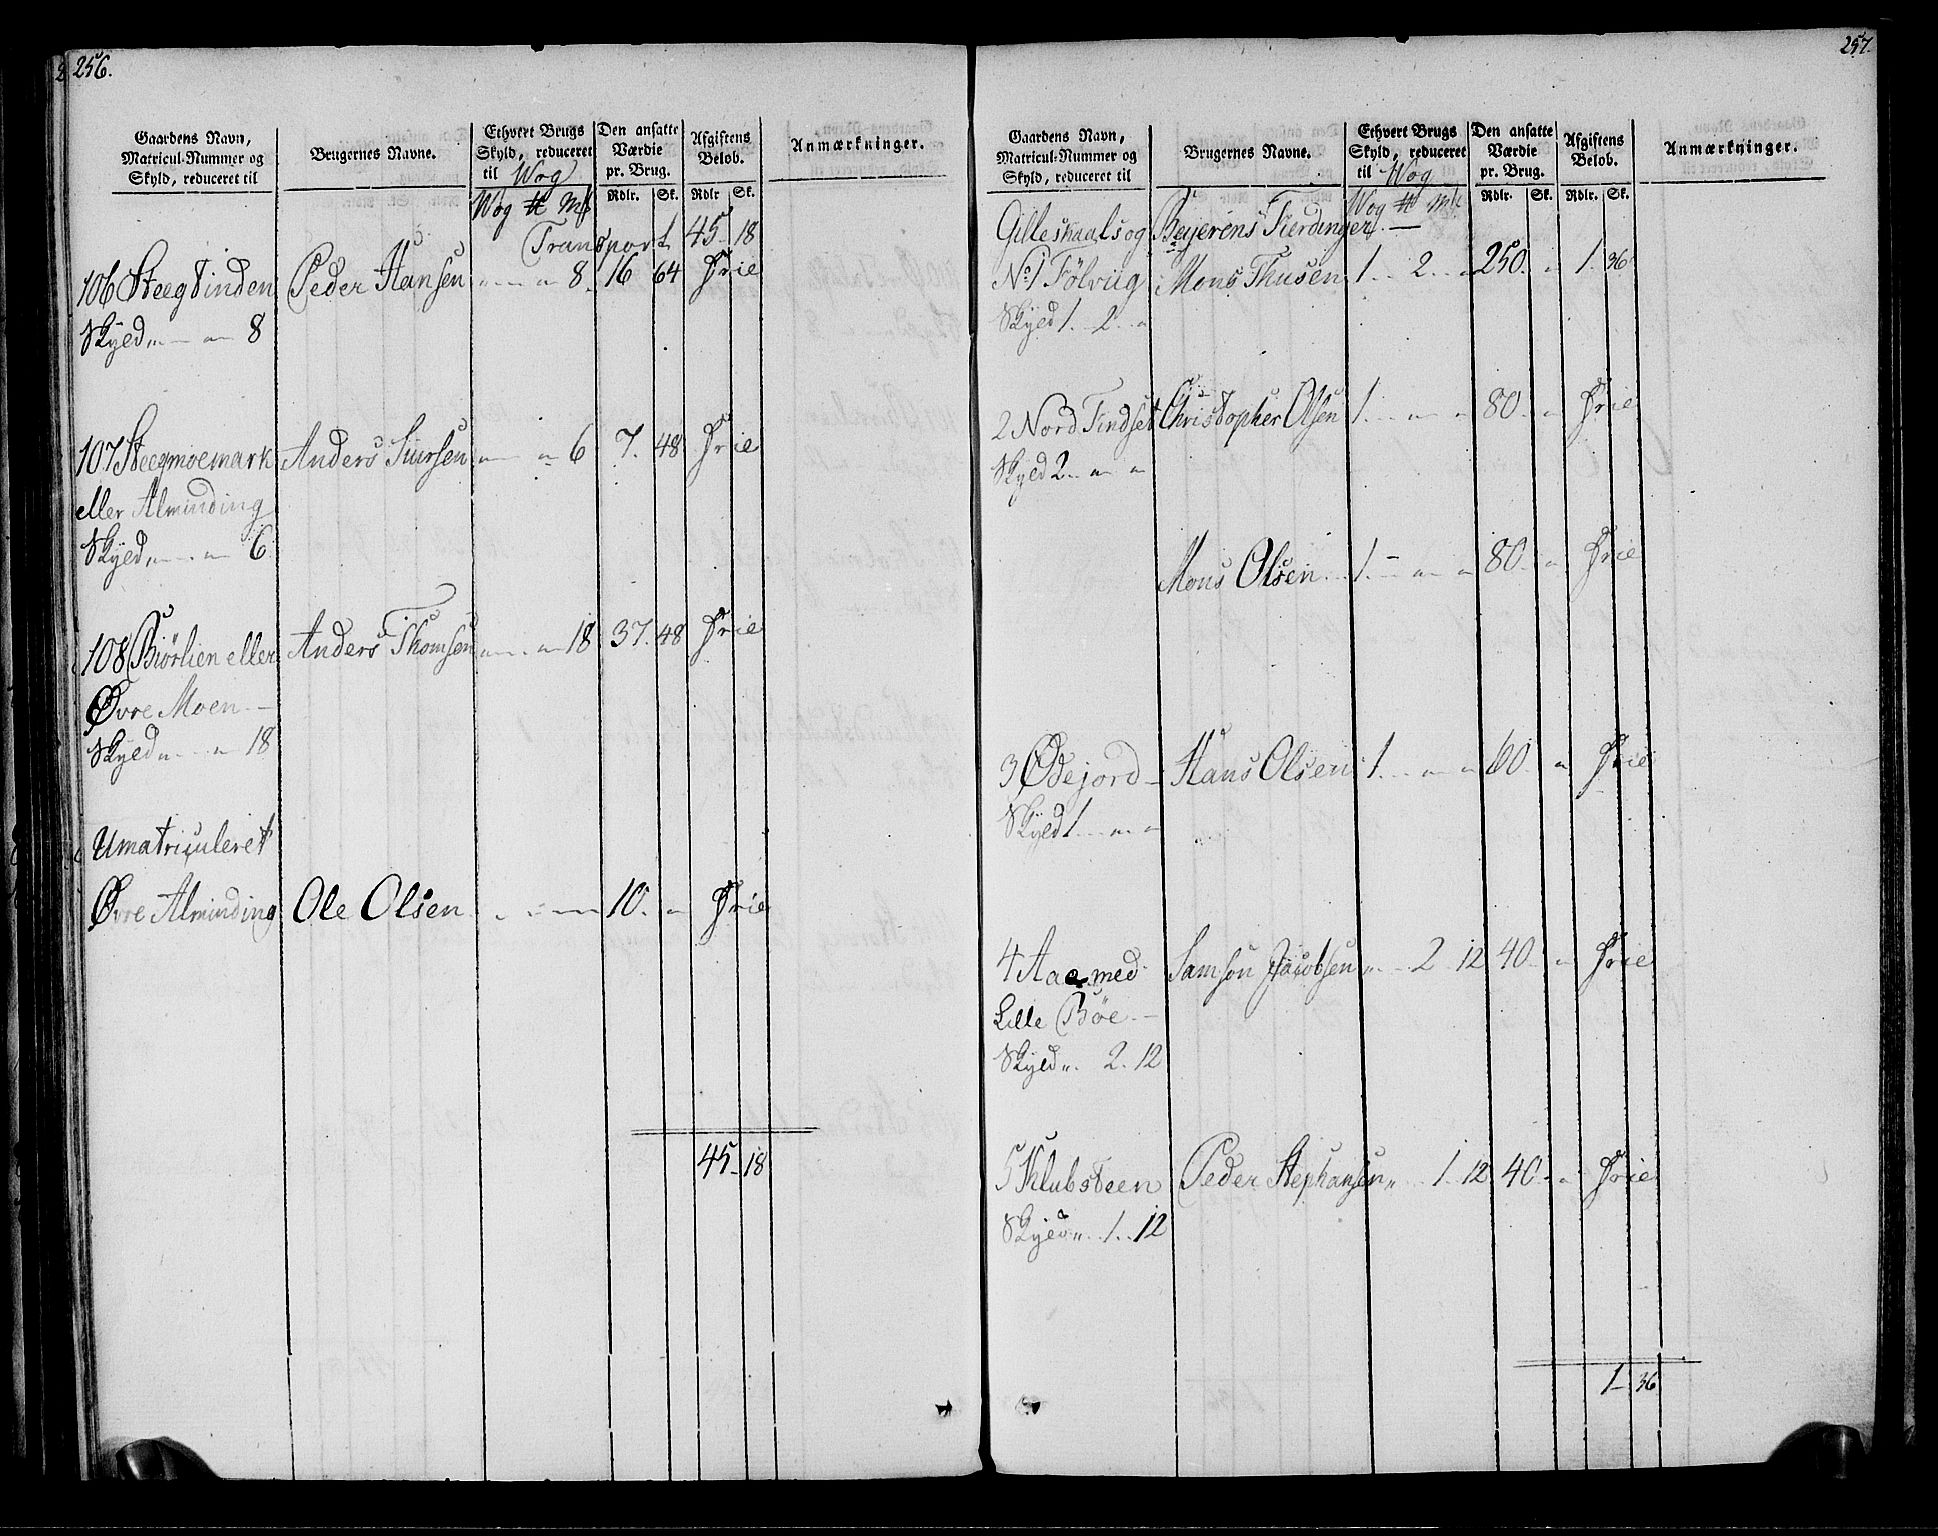 256.
Gaardens Navn, Matricul-Nummer og Skyld, reduceret til | Brugernes Navne. | Ethvert Brugs Skyld, reduceret til Wog | Den ansatte Værdie pr. Brug. | Afgiftens Beløb. | Anmærkninger.
Wog ℔ Mk | Rdlr. Sk. | Rdlr Sk.
Transport 45 18
106 Steegtinden Peder Hansen " — " 8. 16 64 Frie
Skyld " — " 8
107 Steegmoemark Anders Siursen " — " 6 7. 48 Frie
eller Alminding
Skyld " — " 6
108 Biørlien eller Anders Thomsen " — " 18 37. 48 Frie
Øvre Moen —
Skyld " — " 18
Umatriculeret
Øvre Alminding Ole Olsen " — " — 10. " Frie
45 18
257.
Gaardens Navn, Matricul-Nummer og Skyld, reduceret til | Brugernes Navne. | Ethvert Brugs Skyld, reduceret til Wog | Den ansatte Værdie pr. Brug. | Afgiftens Beløb. | Anmærkninger.
Wog ℔ Mk | Rdlr. Sk. | Rdlr. Sk.
Gilleskaals og Beyerens Fierdinger. —
No 1 Følvüg Mons Thusen 1 .. 2 .. " 250. " 1. 36
Skyld 1. 2. "
2 Nord Findset Christopher Olsen 1. — " — " 80. " Frie
Skyld 2 — " — "
Mons Olsen 1. — " — " 80. " Frie
3 Ødejord — Hans Olsen 1. — " — " 60. " Frie
Skyld 1 — " — "
4 Aae med Samson Jacobsen " — 2 12 40. " Frie
Lille Bøe —
Skyld " 2. 12
5 Klubsteen Peder Stephansen " 1. 12 40. " Frie
Skyld " 1. 12
1 36